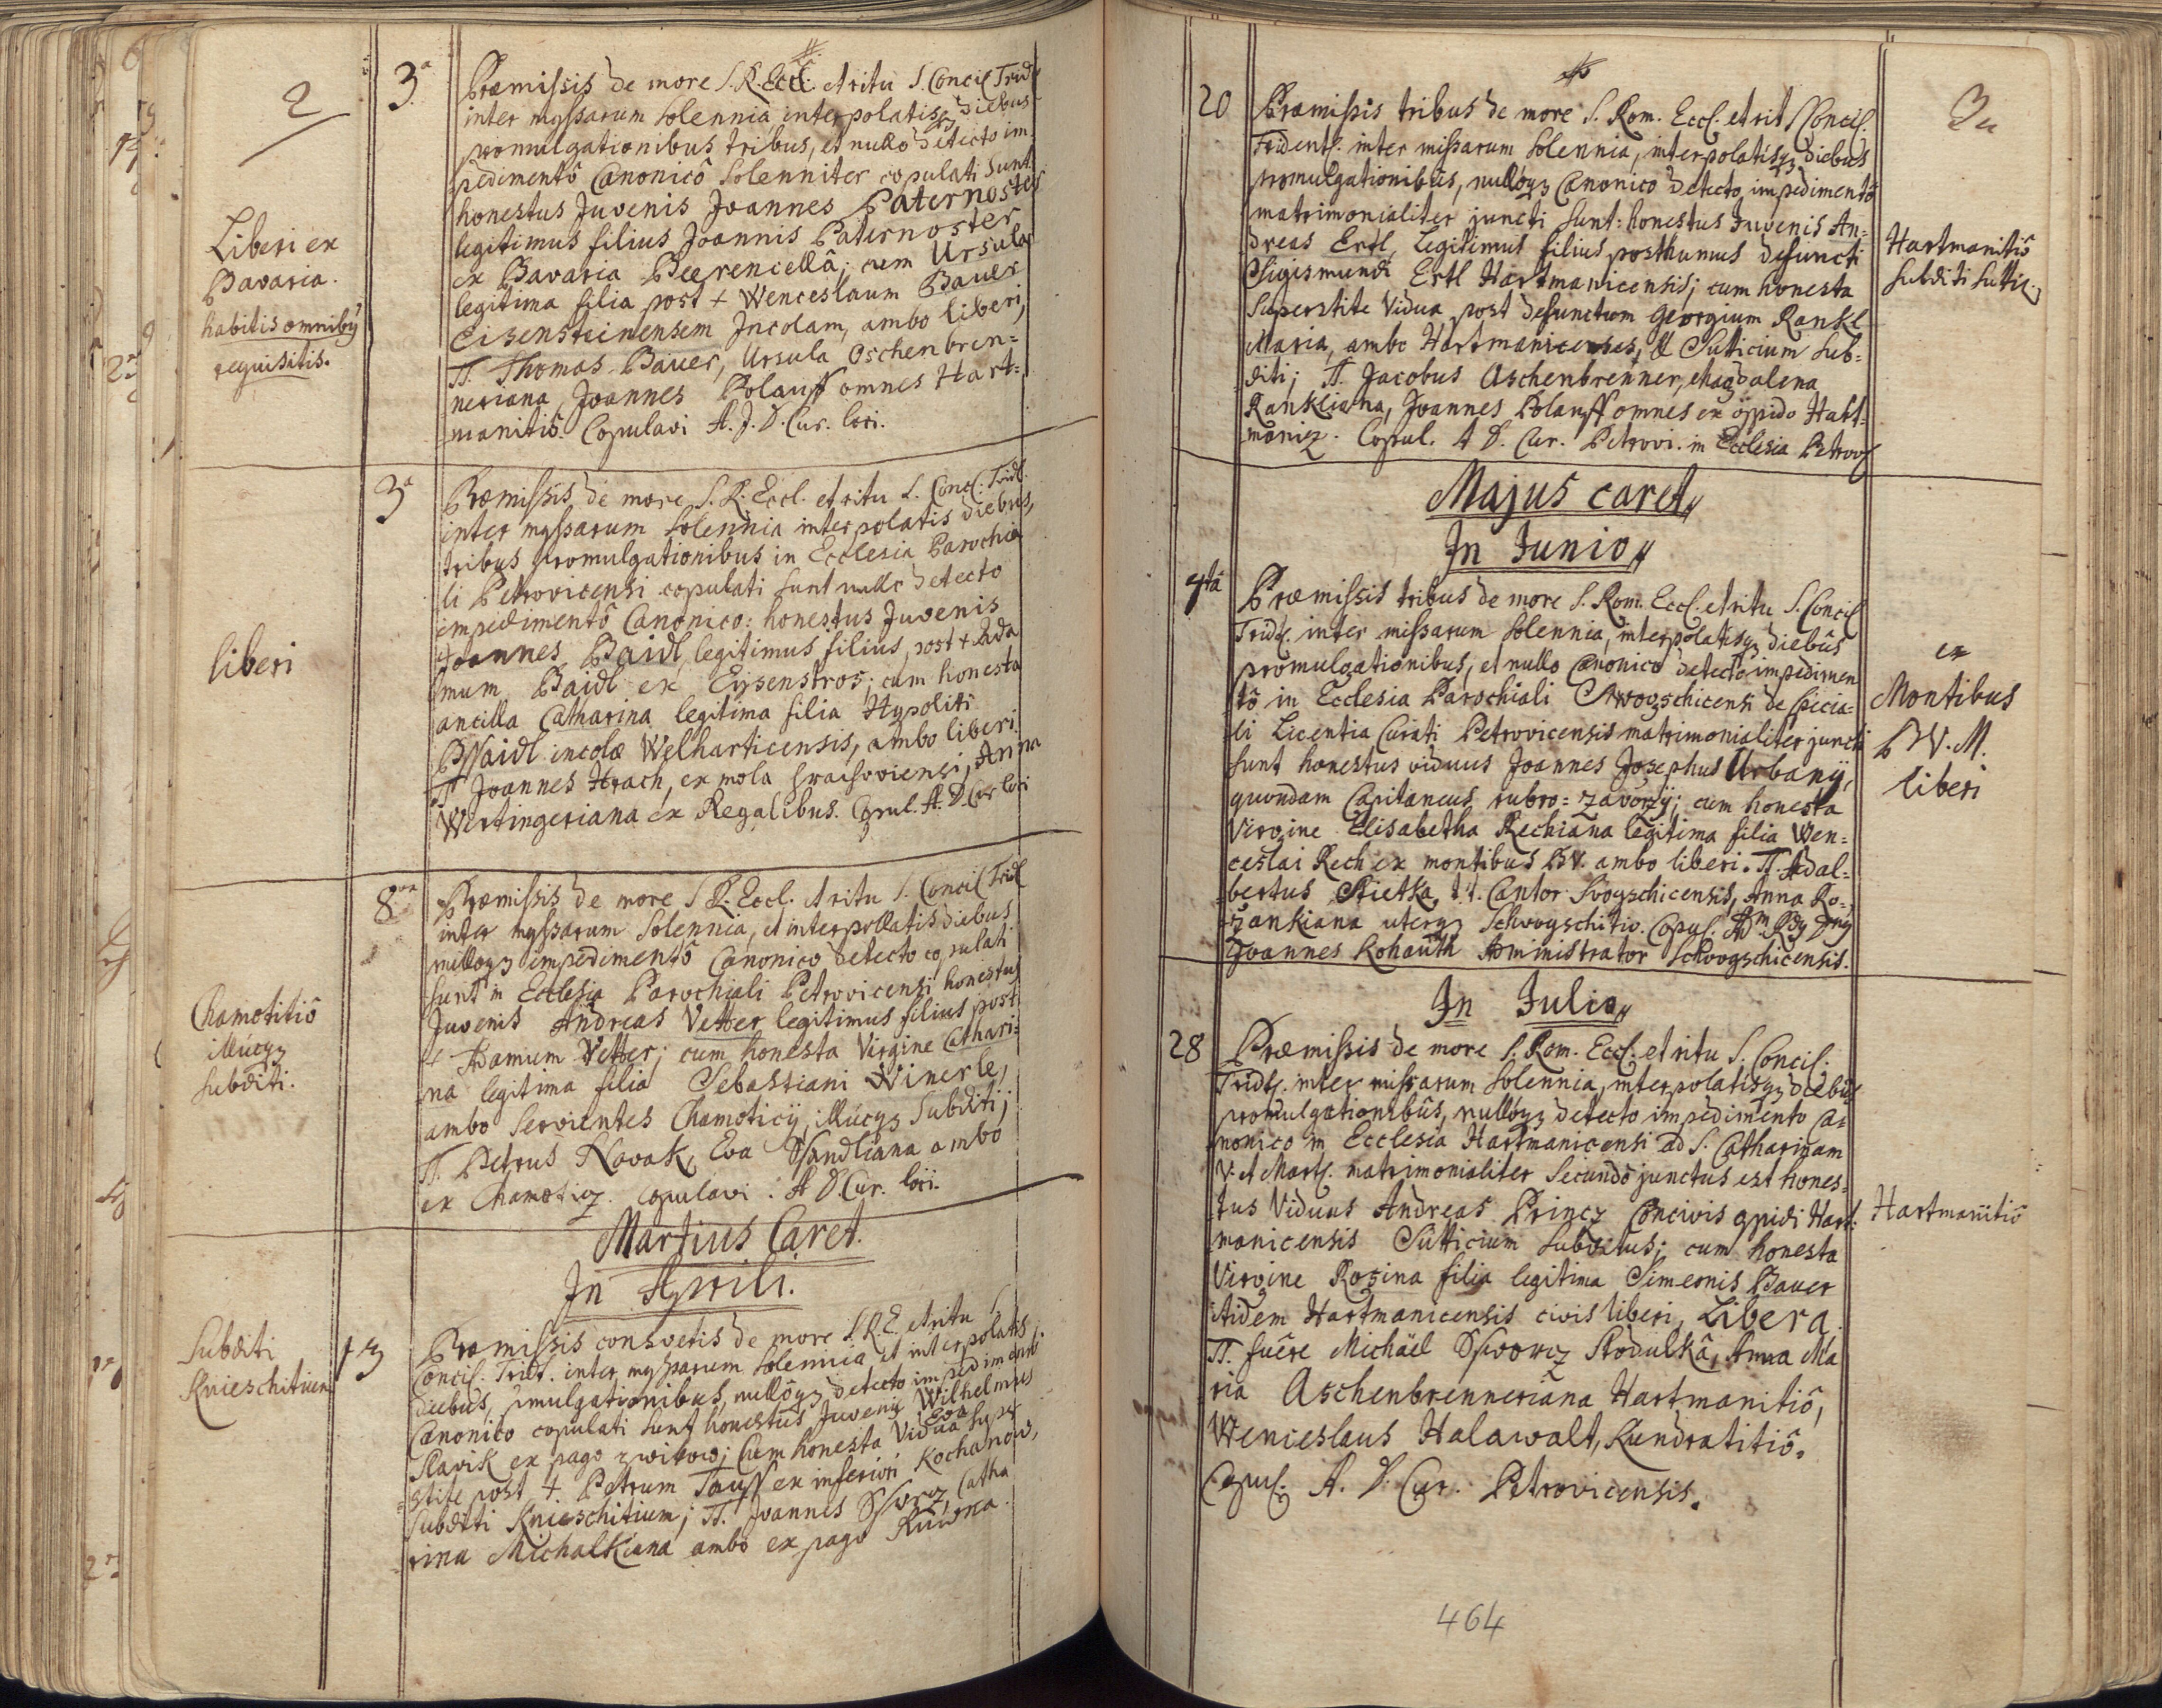 2
3ª
Præmissis de more S. R. Eccl. et ritu S. Concil Trid
inter myssarum solennia interpolatisq; diebus
promulgationibus tribus, et nullo detecto im
pedimentô Canonicô Solenniter copulati sunt
honestus Juvenis Joannes Paternoster
legitimus filius Joannis Paternoster
ex Bavaria Beerencellâ; cum Ursula
legitima filia post + Wenceslaum Bauer
Eisensteinensem Incolam, ambo liberi,
TT. Thomas Bauer, Ursula Oschenbren=
neriana, Joannes Polauff omnes Hart=
manitiô. Copulavi A. J. D. Cur. loci.
Liberi ex
Bavaria.
habitis omnibq
requisitis.
3ª
Præmissis de more S. R. Eccl. et ritu S. Conc. Trid.
inter myssarum Solennia interpolatis diebus,
tribus promulgationibus in Ecclesia Parochia
li Petrovicensi copulati sunt nullo detecto
impedimentô Canonico: honestus Juvenis
Joannes Baidl, legitimus filius, post + Ada
mum Baidl ex Eysenstros; cum honesta
ancilla Catharina legitima filia Hypoliti
Pssaidl incolæ Welharticensis, ambo liberi.
TT Joannes Hrach, ex mola hrachoviensi, Anna
Wertingeriana ex Regalibus. Copul. A. D. Cur loci
liberi
8va
Præmissis de more S R. Eccl. et ritu S. Concil Trid
inter myssarum Solennia, et interpollatis diebus
nulloq; impedimentô Canonico detecto copulati
sunt in Ecclesia Parochiali Petrovicensi honestus
Juvenis Andreas Vetter legitimus filius post
+ Adamum Vetter; cum honesta Virgine Cathari=
na legitima filia Sebastiani Winerle,
ambo Servientes Chamoticij, illucq; Subditi;
TT. Petrus Novak, Eva Ssandliana ambo
ex Chamoticz. copulavi: A D. Cur. loci.
Chamotitiô
illucq;
subditi.
Martius Caret.
In Aprili.
13
Præmissis consvetis de more S. R. E. et ritu S
Concil. Trid. inter myssarum Solennia, et interpolatis
diebus, pmulgationibus, nullôq; detecto impedimento
Canonico copulati sunt honestus Juvenis Wilhelmus
Slavik ex pago zwikow; Cum honesta Vidua Eva Supr
stite post + Petrum Tauss ex inferiori Kochanow,
Subditi Knieschitium; TT. Joannes Sswecz, Catha
rina Michalkiana ambo ex pago Ruwna.
Subditi
Knieschitium
3
20
Præmissis tribus de more S. Rom. Eccl. et rit S Concil.
Trident. inter missarum Solennia, interpolatisq; diebus
promulgationibus, nullôq; Canonico detecto impedimentô
matrimonialiter juncti sunt: honestus Juvenis An=
dreas Ertl, Legitimus filius posthumus defuncti
Sigismundi Ertl Hartmanicensis; cum honesta
Superstite Vidua post defunctum Georgium Rankl
Maria, ambo Hartmanicenses, & Sutticium Sub=
diti; TT. Jacobus Aschenbrenner, Magdalena
Rankliana, Joannes Polauff omnes ex oppido Hart=
manicz. Copul. A D. Cur. Petrovi. in Ecclesia Petrov
Hartmanitiô
Subditi Suttic.
Majus caret
In Junio
7tâ
Præmissis tribus de more S. Rom. Eccl. et ritu S. Concil
Tridt. inter missarum Solennia, interpolatisq; diebus
promulgationibus, et nullo Canonico detecto impedimen
tô in Ecclesia Parochiali Swogschicensi de specia=
li Licentia Curati Petrovicensis matrimonialiter juncti
sunt honestus viduus Joannes Josephus Urbanÿ,
quondam Capitaneus rubro=zavorzij; cum honesta
Virgine Elisabetha Rechiana legitima filia Wen=
ceslai Rech ex montibus BV. ambo liberi. TT. Adal=
bertus Skietka, t.t. Cantor Svogschicensis, Anna Ro=
zankiana uterq; Schwogschitio. Copul. Adm Rdg Dng
Joannes Kohauth Administrator Schvogschicensis.
ex
Montibus
B V. M.
liberi
In Julio
28
Præmissis de more S. Rom. Eccl. et ritu S. Concil.
Tridt. inter missarum Solennia, interpolatisq; diebus
promulgationibus, nullôq; detecto impedimento Ca=
nonico in Ecclesia Hartmanicensi ad S. Catharinam
V et Mart. matrimonialiter Secundo junctus est hones=
tus Viduus Andreas Princz Concivis opidi Hart:
manicensis Sutticium Subditus; cum honesta
Virgine Rosina filia legitima Simeonis Bauer
itidem Hartmanicensis civis liberi, Libera.
TT. fuêre Michaël Sswarcz Rodulkâ, Anna Ma
ria Aschenbrenneriana Hartmanitiô,
Wenceslaus Halawalt, Kundratitiô.
Copul. A. D. Cur. Petrovicensis.
Hartmanitiô
464